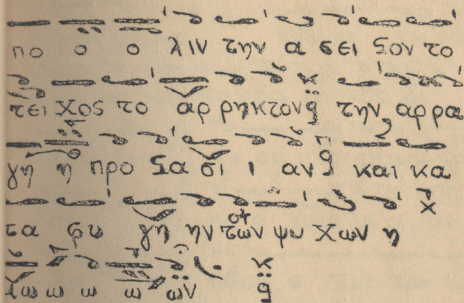 πο ο ο λιν την α σει ϛον το
τει χος το αρ ρηκτον την αρρα
γη η προ ϛα σι ι αν και κα
τα φυ γη ην των ψυ χων η
μω ω ω ω ων